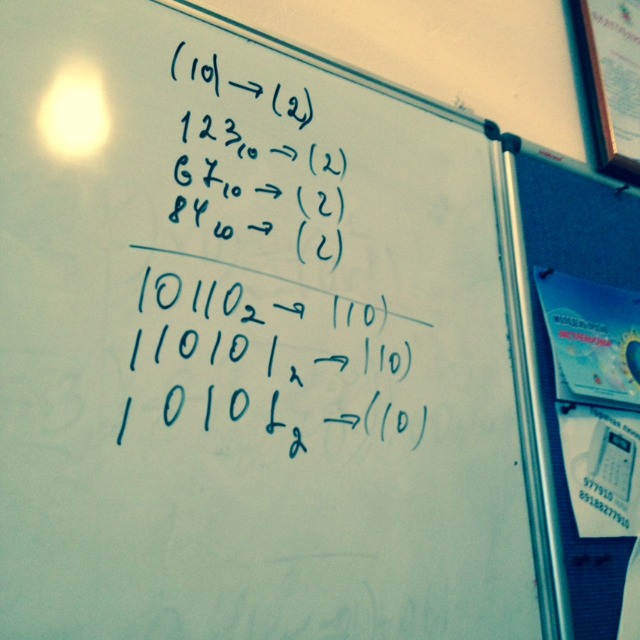 (10) → (2)
123₁₀ → (2)
67₁₀ → (2)
84₁₀ → (2)
10110₂ → (10)
110101₂ → (10)
10101₂ → (10)
977910
89188277910